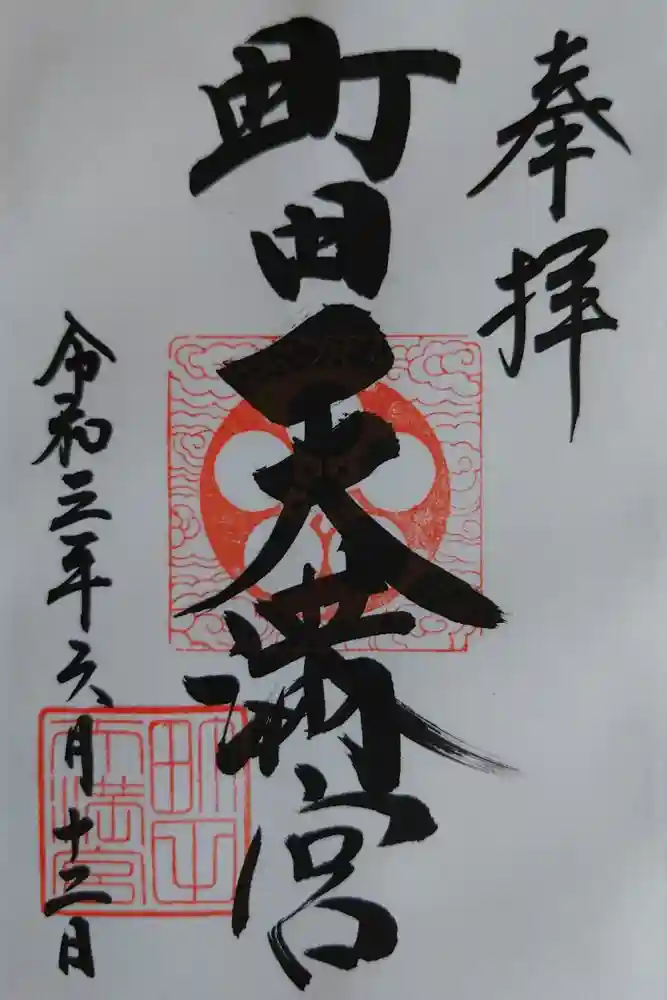 奉拝
町田天満宮
令和三年六月十三日
町田
天満宮